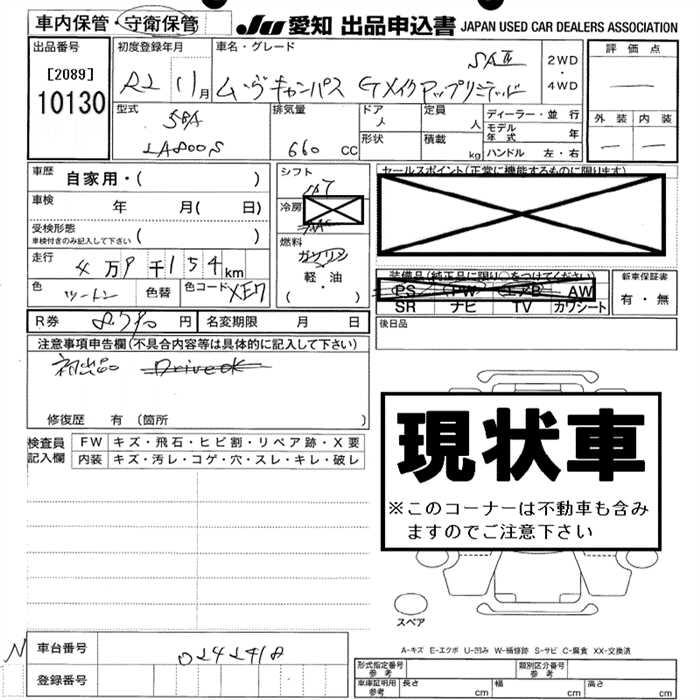 車内保管・守衛保管
JU 愛知 出品申込書 JAPAN USED CAR DEALERS ASSOCIATION
出品番号
[2089]
10130
初度登録年月
R2 11月
車名・グレード
SAⅢ
ムーヴキャンバス Gメイクアップリミテッド
2WD
・
4WD
評価点
外装 内装
型式
5BA
LA800S
排気量
660 cc
ドア
人
形状
定員
人
積載
kg
ディーラー・並行
モデル年式 年
ハンドル 左・右
車歴 自家用・( )
車検 年 月(日)
受検形態
車検付きのみ記入して下さい ( )
走行 4万9千154km
色 ツートン 色替 色コード XE7
シフト
冷房
燃料
ガソリン
軽・油
( ・ )
セールスポイント(正常に機能するものに限ります)
装備品(純正品に限り○をつけてください)
PS PW エアB AW
SR ナビ TV カワシート
新車保証書
有・無
後日品
R券 8.790円 名変期限 月 日
注意事項申告欄(不具合内容等は具体的に記入して下さい)
初出品 Drive OK
修復歴 有(箇所 )
検査員記入欄
FW キズ・飛石・ヒビ割・リペア跡・X要
内装 キズ・汚レ・コゲ・穴・スレ・キレ・破レ
現状車
※このコーナーは不動車も含み
ますのでご注意下さい
スペア
A-キズ E-エクボ U-凹み W-補修跡 S-サビ C-腐食 XX-交換済
N
車台番号 0242418
登録番号
形式指定番号
参考
類別区分番号
参考
車庫証明用
参考
長さ cm 幅 cm 高さ cm